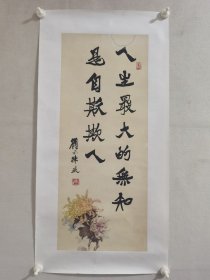 人生最大的無知
是自欺欺人